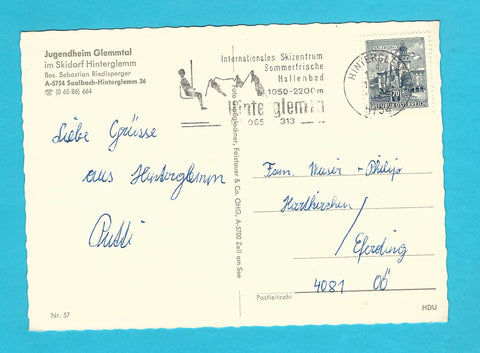 Jugendheim Glemmtal
im Skidorf Hinterglemm
Bes. Sebastian Riedlsperger
A-5754 Saalbach-Hinterglemm 36
(0 65 86) 664
Internationales Skizentrum
Sommerfrische
Hallenbad
1050-2200m
Hinterglemm
065 313
HINTERGLEMM
5754
70
Liebe Grüsse
aus Hinterglemm
Foto Großglockner, Faistauer & Co. OHG, A-5700 Zell am See
Fam. + Philip
Hartkirchen
Eferding
4081 OÖ
Postleitzahl
Nr. 57
HDU